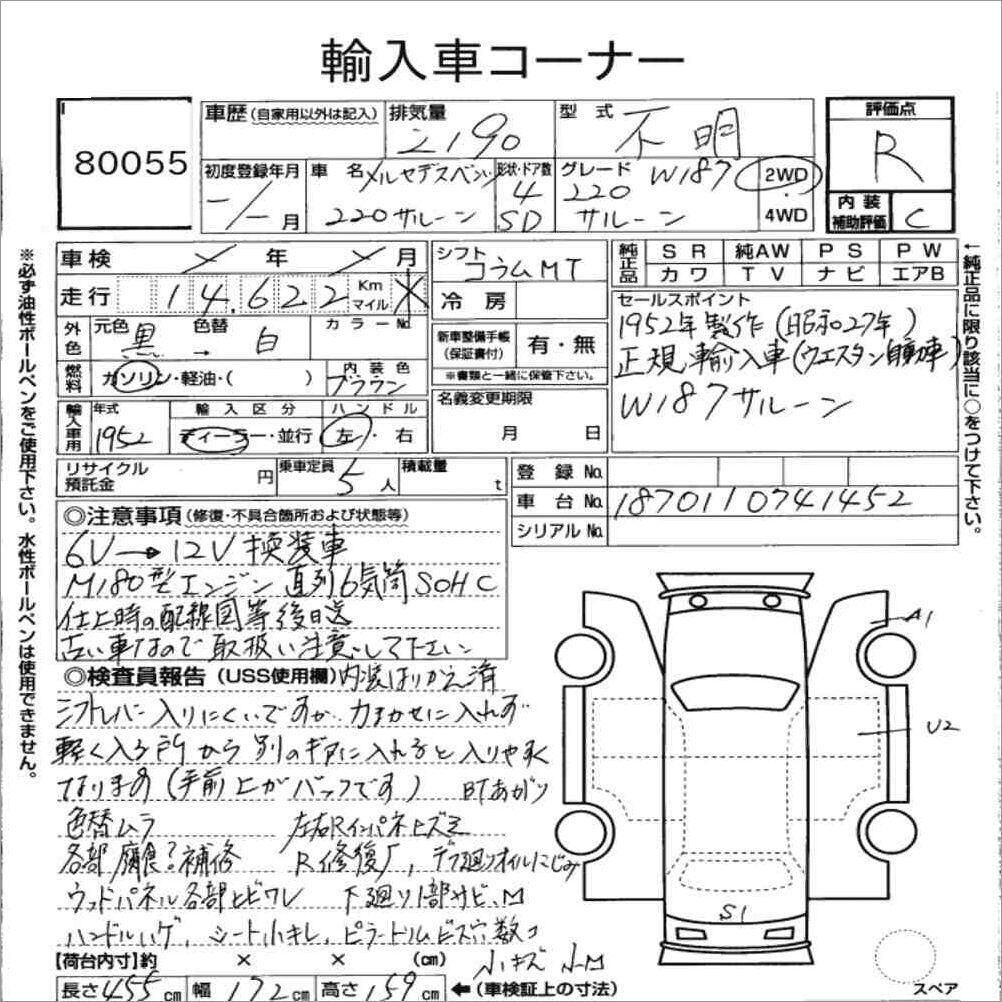 輸入車コーナー
80055
車歴 (自家用以外は記入)
排気量 2190
型式 不明
評価点 R
初度登録年月 -/- 月
車名 メルセデスベンツ 220サルーン
形状・ドア数 4 SD
グレード 220 W187 サルーン
2WD
4WD
内装補助評価 C
車検 年 月
シフト コラムMT
純正品 SR 純AW PS PW
カワ TV ナビ エアB
走行 14,622 Km マイル
冷房
セールスポイント
1952年製作(昭和27年)
正規輸入車(ウエスタン自動車)
W187サルーン
外色 元色 黒 → 色替 白 カラーNo.
新車整備手帳(保証書付) 有・無
※書類と一緒に保管下さい。
燃料 ガソリン・軽油・( ) 内装色 ブラウン
名義変更期限 月 日
輸入車用 年式 1952 輸入区分 ディーラー・並行 ハンドル 左・右
リサイクル預託金 円 乗車定員 5人 積載量 t
登録No.
車台No. 1870110741452
シリアルNo.
◎注意事項(修復・不具合箇所および状態等)
6V→12V換装車
M180型エンジン 直列6気筒SOHC
仕上時の配線図等後日送
古い車なので取扱い注意して下さい
◎検査員報告(USS使用欄) 内装はりかえ済
シフトレバー入りにくいですが、力まかせに入れず
軽く入る所から別のギアに入れると入りやすく
なります(手前上がバックです) BTあがり
色替ムラ 左右Rインパネ上ズミ
各部腐食?補修 R修復 デフ廻りオイルにじみ
ウッドパネル各部ヒビワレ 下廻り1部サビ
ハンドルハゲ、シート小キレ、ピラートリムビス穴数コ
小キズ
A1
U2
S1
【荷台内寸】約 × × (cm)
長さ455cm 幅172cm 高さ159cm ←(車検証上の寸法)
スペア
※必ず油性ボールペンをご使用下さい。水性ボールペンは使用できません。
←純正品に限り該当に○をつけて下さい。